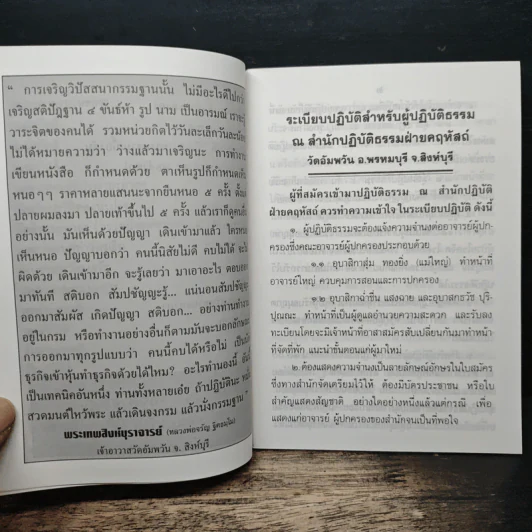 “ การเจริญวิปัสสนากรรมฐานนั้น ไม่มีอะไรดีไปกว่า
เจริญสติปัฏฐาน ๔ ขันธ์ห้า รูป นาม เป็นอารมณ์ เราจะรู้
วาระจิตของคนได้ รวมหน่วยกิตไว้วันละเล็กวันละน้อย
ไม่ได้หมายความว่า ว่างแล้วมาเจริญนะ การทำงาน
เขียนหนังสือ ก็กำหนดด้วย ตาเห็นรูปก็กำหนด
หนอๆๆ ราคาหลายแสนนะจากยืนหนอ ๕ ครั้ง ตั้งแต่
ปลายผมลงมา ปลายเท้าขึ้นไป ๕ ครั้ง แล้วเราก็ดูคน
อย่างนั้น มันเห็นด้วยปัญญา เดินเข้ามาแล้ว ใคร
เห็นหนอ ปัญญาบอกว่า คนนี้นิสัยไม่ดี คบไม่ได้ จะ
ผิดด้วย เดินเข้ามาอีก จะรู้เลยว่า มาเอาอะไร ตอบออก
มาทันที สติบอก สัมปชัญญะรู้... แน่นอนสัมปชัญญะ
มาสัมผัส เกิดปัญญา สติบอก... อย่างท่านทำงาน
อยู่ในกรม หรือทำงานอย่างอื่นก็ตามมันจะบอกลักษณะ
การออกมาทุกรูปแบบว่า คนนี้คบได้หรือไม่ เป็น
ธุรกิจเข้าหุ้นทำธุรกิจด้วยได้ไหม? อะไรทำนองนี้ อันนี้
เป็นเทคนิคอันหนึ่ง ท่านทั้งหลายเอ๋ย ถ้าปฏิบัตินะ
สวดมนต์ไหว้พระ แล้วเดินจงกรม แล้วนั่งกรรมฐาน ”
พระเทพสิงหบุราจารย์ (หลวงพ่อจรัญ ฐิตธมฺโม)
เจ้าอาวาสวัดอัมพวัน จ. สิงห์บุรี
ระเบียบปฏิบัติสำหรับผู้ปฏิบัติธรรม
ณ สำนักปฏิบัติธรรมฝ่ายคฤหัสถ์
วัดอัมพวัน อ.พรหมบุรี จ.สิงห์บุรี
ผู้ที่สมัครเข้ามาปฏิบัติธรรม ณ สำนักปฏิบัติ
ฝ่ายคฤหัสถ์ ควรทำความเข้าใจ ในระเบียบปฏิบัติ ดังนี้
๑. ผู้ปฏิบัติธรรมจะต้องแจ้งความจำนงต่ออาจารย์ผู้ปก-
ครองซึ่งคณะอาจารย์ผู้ปกครองประกอบด้วย
๑.๑ อุบาสิกาสุ่ม ทองยิ่ง (แม่ใหญ่) ทำหน้าที่
อาจารย์ใหญ่ ควบคุมการสอนและการปกครอง
๑.๒ อุบาสิกาฉ่ำชื่น แสงฉาย และอุบาสกธวัช บุริ-
ปุณณะ ทำหน้าที่เป็นผู้ดูแลอำนวยความสะดวก และรับลง
ทะเบียนโดยจะมีเจ้าหน้าที่อาสาสมัครสับเปลี่ยนกันมาทำหน้าที่
จัดที่พัก แนะนำขั้นตอนแก่ผู้มาใหม่
๒. ต้องแสดงความจำนงเป็นลายลักษณ์อักษรในใบสมัคร
ซึ่งทางสำนักจัดเตรียมไว้ให้ ต้องมีบัตรประชาชน หรือใบ
สำคัญแสดงสัญชาติ อย่างใดอย่างหนึ่งแล้วแต่กรณี เพื่อ
แสดงแก่อาจารย์ ผู้ปกครองของสำนักจนเป็นที่พอใจ